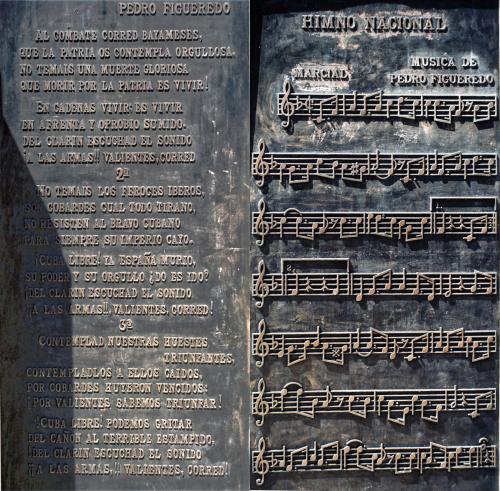 PEDRO FIGUEREDO
AL COMBATE CORRED BAYAMESES,
QUE LA PATRIA OS CONTEMPLA ORGULLOSA.
NO TEMAIS UNA MUERTE GLORIOSA
QUE MORIR POR LA PATRIA ES VIVIR!
EN CADENAS VIVIR: ES VIVIR
EN AFRENTA Y OPROBIO SUMIDO.
DEL CLARIN ESCUCHAD EL SONIDO
¡A LAS ARMAS!! VALIENTES, CORRED
2ª
NO TEMAIS LOS FEROCES IBEROS,
SON COBARDES CUAL TODO TIRANO,
NO RESISTEN AL BRAVO CUBANO
PARA SIEMPRE SU IMPERIO CAYO.
¡CUBA LIBRE! YA ESPAÑA MURIO,
SU PODER Y SU ORGULLO ¿DO ES IDO?
¡DEL CLARIN ESCUCHAD EL SONIDO
¡¡A LAS ARMAS!!, VALIENTES, CORRED!
3ª
CONTEMPLAD NUESTRAS HUESTES
TRIUNFANTES,
CONTEMPLADLOS A ELLOS CAIDOS,
POR COBARDES HUYERON VENCIDOS:
¡POR VALIENTES SABEMOS TRIUNFAR!
¡CUBA LIBRE! PODEMOS GRITAR
DEL CAÑON AL TERRIBLE ESTAMPIDO,
¡DEL CLARIN ESCUCHAD EL SONIDO
¡¡A LAS ARMAS,!! VALIENTES, CORRED!
HIMNO NACIONAL
MARCIAL
MUSICA DE
PEDRO FIGUEREDO